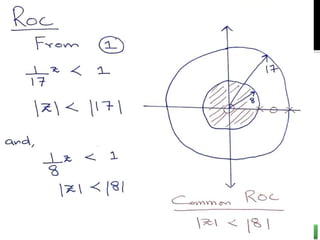 ROC
From ①
1/17 z < 1
|z| < |17|
and,
1/8 z < 1
|z| < |8|
17
8
Common ROC
|z| < |8|